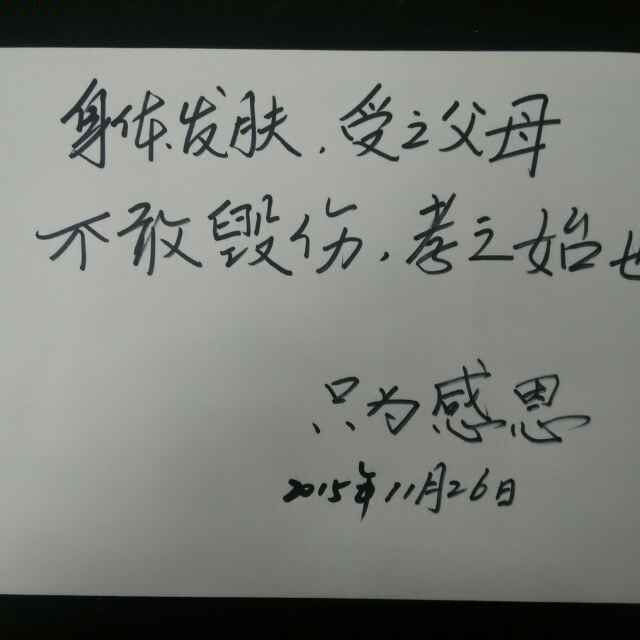 身体发肤，受之父母
不敢毁伤，孝之始也
只为感恩
2015年11月26日